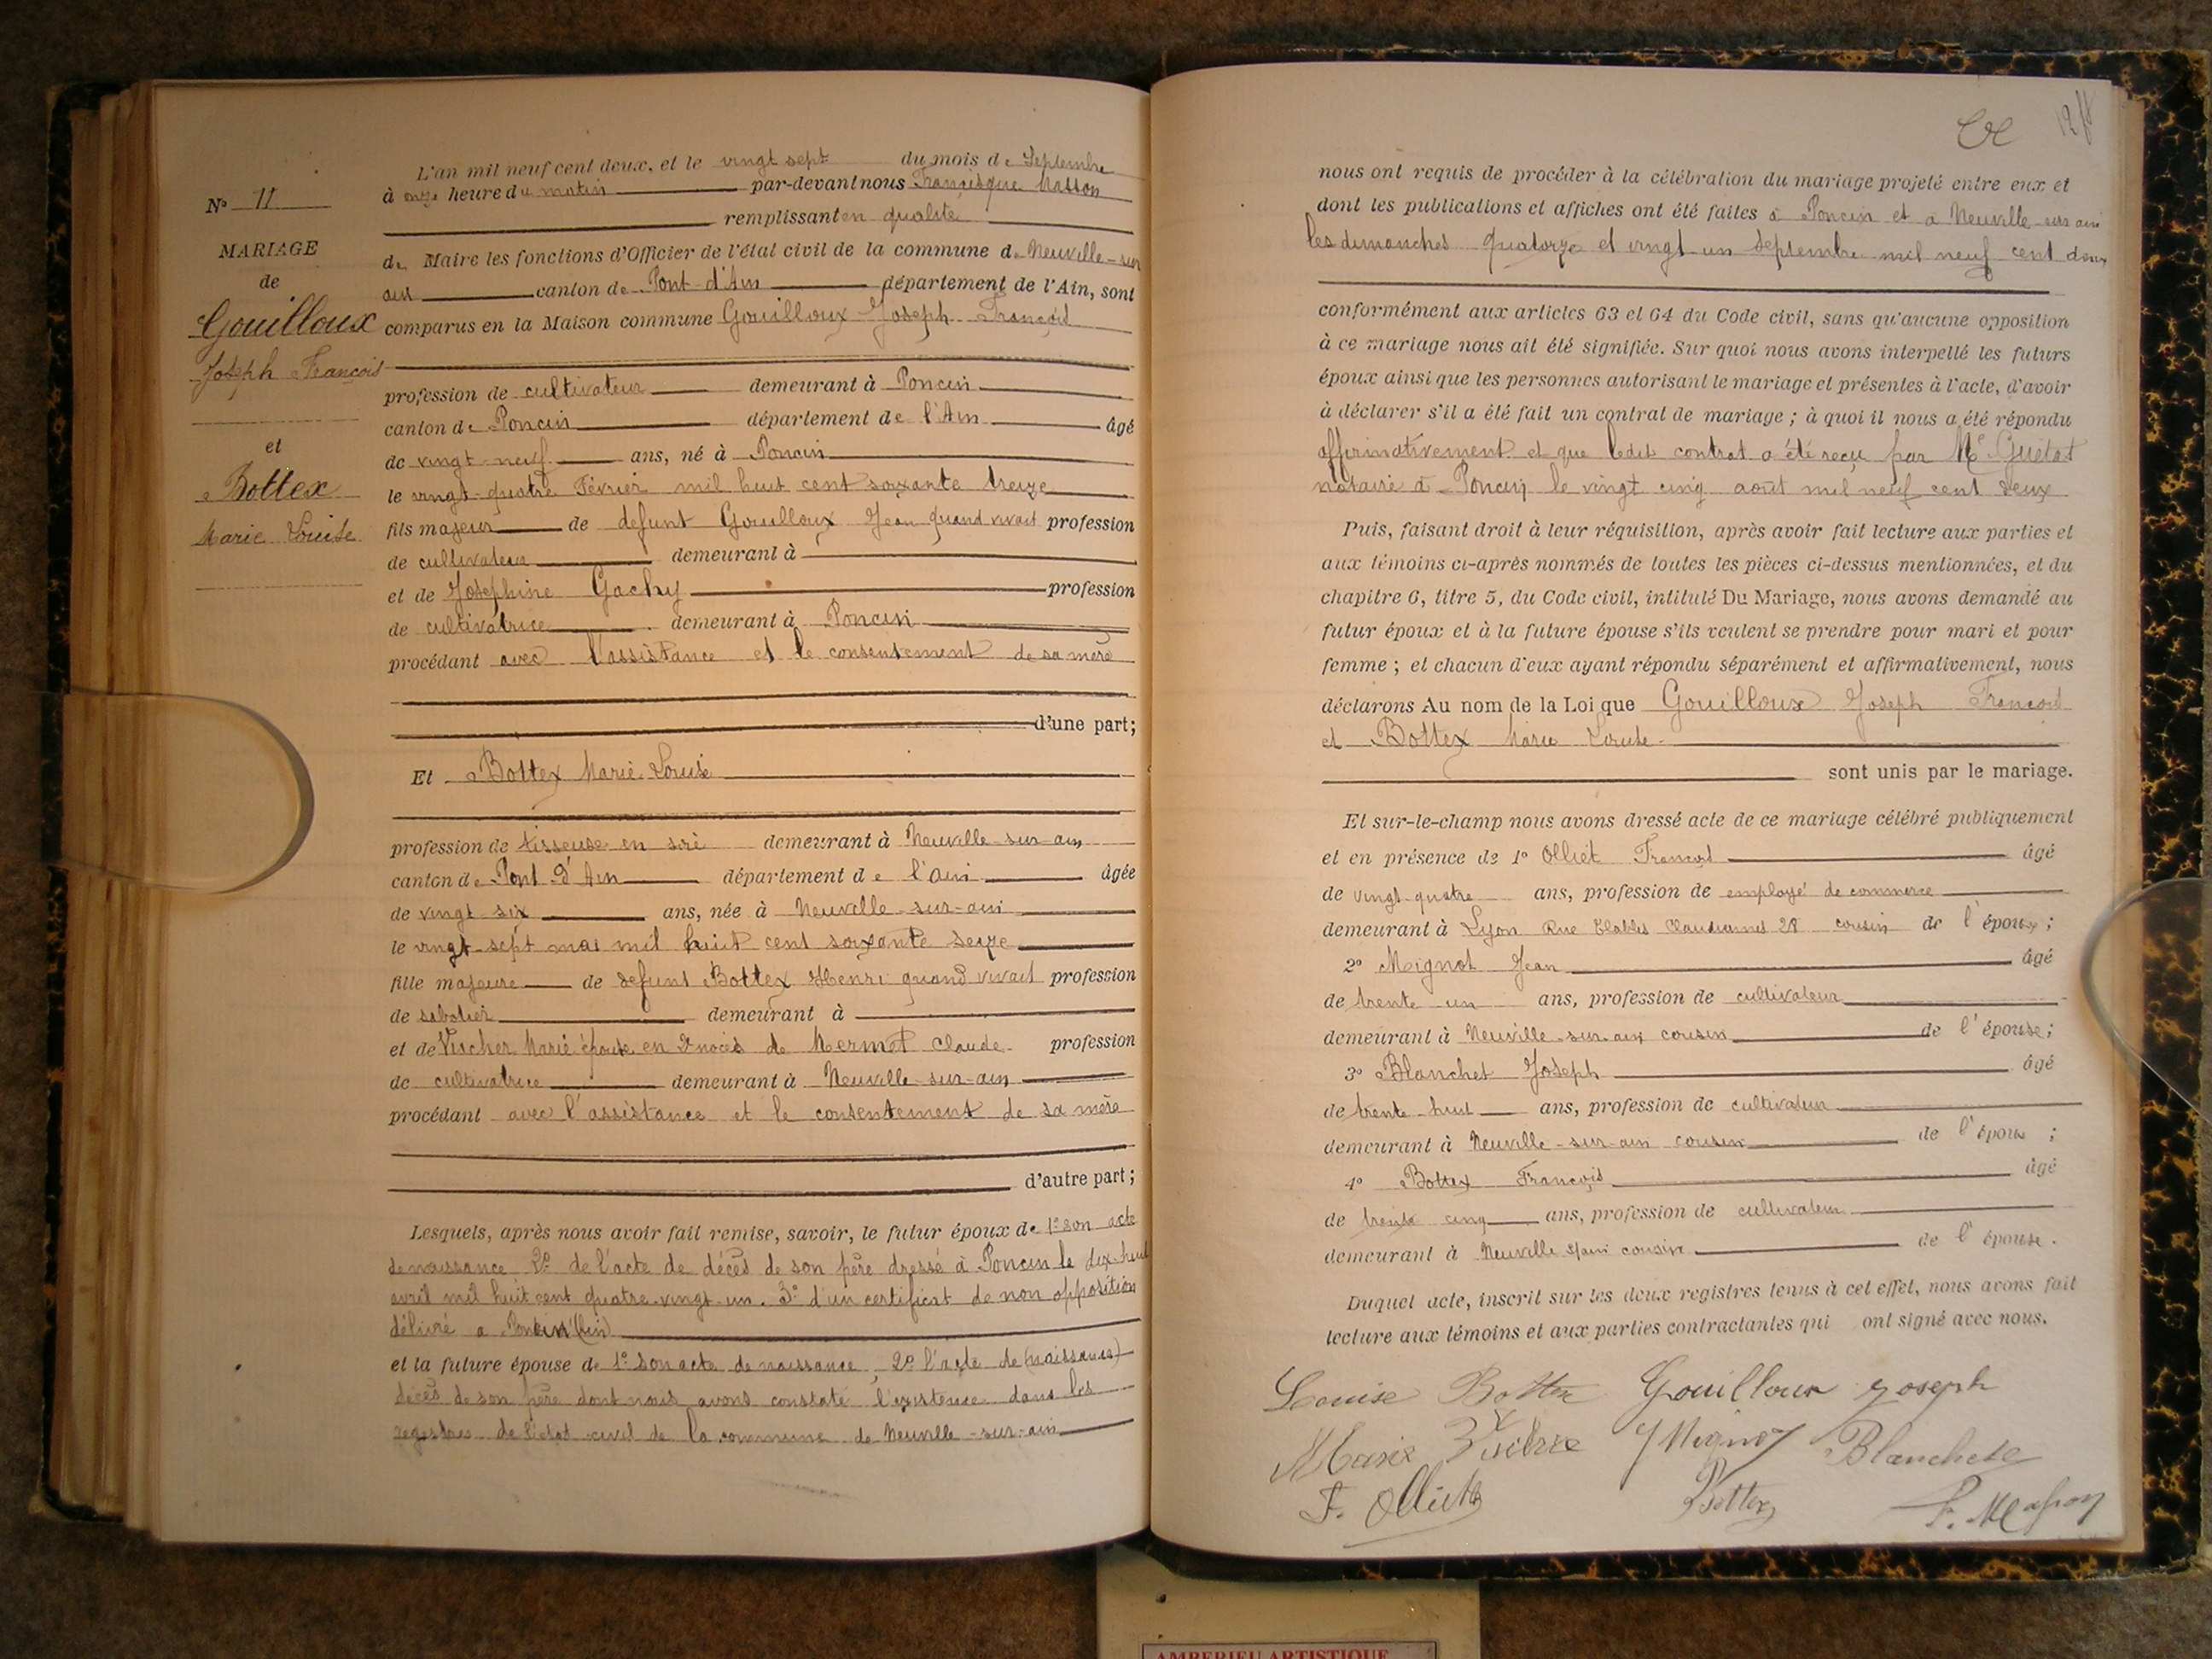 L'an mil neuf cent deux, et le vingt sept du mois de Septembre
à onze heure du matin par-devant nous Francisque Masson
remplissant en qualité
de Maire les fonctions d'Officier de l'état civil de la commune de Neuville-sur
ain canton de Pont-d'Ain département de l'Ain, sont
comparus en la Maison commune Gouilloux Joseph François
profession de cultivateur demeurant à Poncin
canton de Poncin département de l'Ain âgé
de vingt-neuf ans, né à Poncin
le vingt-quatre Février mil huit cent soixante treize
fils majeur de defunt Gouilloux Jean quand vivait profession
de cultivateur demeurant à
et de Joséphine Gachy profession
de cultivatrice demeurant à Poncin
procédant avec l'assistance et le consentement de sa mère
d'une part;
Et Bottex Marie Louise
profession de tisseuse en soie demeurant à Neuville-sur-ain
canton de Pont d'Ain département de l'ain âgée
de vingt six ans, née à Neuville-sur-ain
le vingt-sept mai mil huit cent soixante seize
fille majeure de defunt Bottex Henri quand vivait profession
de sabotier demeurant à
et de Vucher Marie épouse en 2es noces de Mermet Claude profession
de cultivatrice demeurant à Neuville-sur-ain
procédant avec l'assistance et le consentement de sa mère
d'autre part;
Lesquels, après nous avoir fait remise, savoir, le futur époux de 1° son acte
de naissance 2° de l'acte de décès de son père dressé à Poncin le dix-huit
avril mil huit cent quatre-vingt-un. 3° d'un certificat de non opposition
délivré a Poncin
et la future épouse de 1° son acte de naissance, 2° l'acte de (naissance)
décès de son père dont nous avons constaté l'existence dans les
registres de l'état civil de la commune de Neuville-sur-ain
N° 11
MARIAGE
de
Gouilloux
Joseph François
et
Bottex
Marie Louise
nous ont requis de procéder à la célébration du mariage projeté entre eux et
dont les publications et affiches ont été faites à Poncin et a Neuville-sur ain
les dimanches quatorze et vingt-un Septembre mil neuf cent deux
conformément aux articles 63 et 64 du Code civil, sans qu'aucune opposition
à ce mariage nous ait été signifiée. Sur quoi nous avons interpellé les futurs
époux ainsi que les personnes autorisant le mariage et présentes à l'acte, d'avoir
à déclarer s'il a été fait un contrat de mariage; à quoi il nous a été répondu
affirmativement et que ledit contrat a été reçu par Me Guétat
notaire à Poncin le vingt cinq août mil neuf cent deux
Puis, faisant droit à leur réquisition, après avoir fait lecture aux parties et
aux témoins ci-après nommés de toutes les pièces ci-dessus mentionnées, et du
chapitre 6, titre 5, du Code civil, intitulé Du Mariage, nous avons demandé au
futur époux et à la future épouse s'ils veulent se prendre pour mari et pour
femme; et chacun d'eux ayant répondu séparément et affirmativement, nous
déclarons Au nom de la Loi que Gouilloux Joseph François
et Bottex Marie Louise
sont unis par le mariage.
Et sur-le-champ nous avons dressé acte de ce mariage célébré publiquement
et en présence de 1° Olliet François âgé
de vingt-quatre ans, profession de employé de commerce
demeurant à Lyon Rue Tables Claudiennes 28 cousin de l'épouse;
2° Mignot Jean âgé
de trente un ans, profession de cultivateur
demeurant à Neuville-sur-ain cousin de l'épouse;
3° Blanchet Joseph âgé
de trente-huit ans, profession de cultivateur
demeurant à Neuville-sur-ain cousin de l'épouse;
4° Bottex François âgé
de trente cinq ans, profession de cultivateur
demeurant à Neuville s/ain cousin de l'épouse.
Duquel acte, inscrit sur les deux registres tenus à cet effet, nous avons fait
lecture aux témoins et aux parties contractantes qui ont signé avec nous.
Louise Bottex Gouilloux Joseph
Marie J Mignot Blanchet
F. Olliet Bottex F. Masson
AMBERIEU ARTISTIQUE